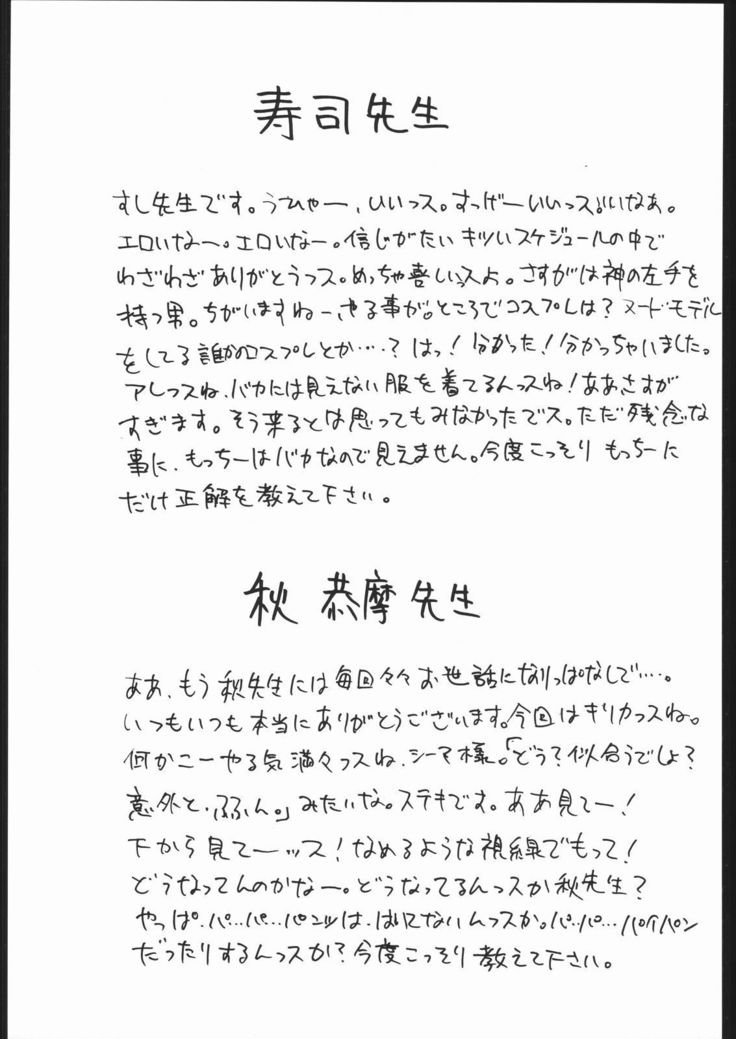 寿司先生
すし先生です。うひゃー、いいっス。すっげーいいっス。いいなあ。
エロいなー。エロいなー。信じがたいキツいスケジュールの中で
わざわざありがとうっス。めっちゃ喜しいっスよ。さすがは神の左手を
持つ男。ちがいますねー、やる事が。ところでコスプレは？ヌードモデル
をしてる誰かのコスプレとか…．？はっ！分かった！分かっちゃいました。
アレっスね、バカには見えない服を着てるんっスね！ああさすが
すぎます。そう来るとは思ってもみなかったでス。ただ残念な
事に、もっちーはバカなので見えません。今度こっそりもっちーに
だけ正解を教えて下さい。
秋 恭摩先生
ああ、もう秋先生には毎回々々お世話になりっぱなしで…．。
いつもいつも本当にありがとうございます。今回はきりカっスね。
何かこーやる気満々っスね、シーマ様。「どう？似合うでしょ？
意外と、ふふん。」みたいな。ステキです。ああ見てー！
下から見てーッス！なめるような視線でもって！
どうなってんのかなー。どうなってるんっスか秋先生？
やっぱ、パ…パ…パンツは、はいてないんっスか。パ…パ…パイパン
だったりするんっスか？今度こっそり教えて下さい。